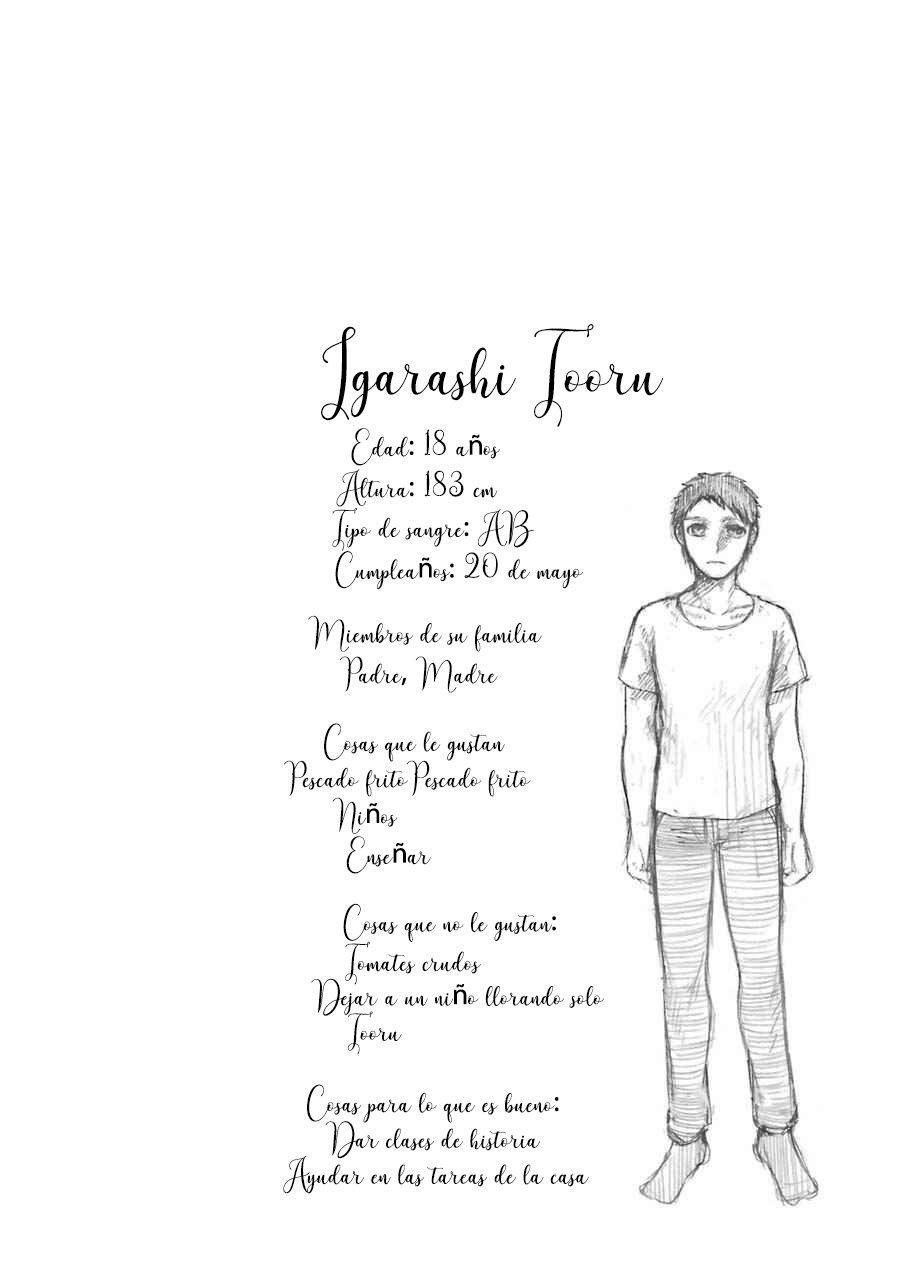 Igarashi Tooru
Edad: 18 años
Altura: 183 cm
Tipo de sangre: AB
Cumpleaños: 20 de mayo
Miembros de su familia
Padre, Madre
Cosas que le gustan
Pescado frito Pescado frito
Niños
Enseñar
Cosas que no le gustan:
Tomates crudos
Dejar a un niño llorando solo
Tooru
Cosas para lo que es bueno:
Dar clases de historia
Ayudar en las tareas de la casa